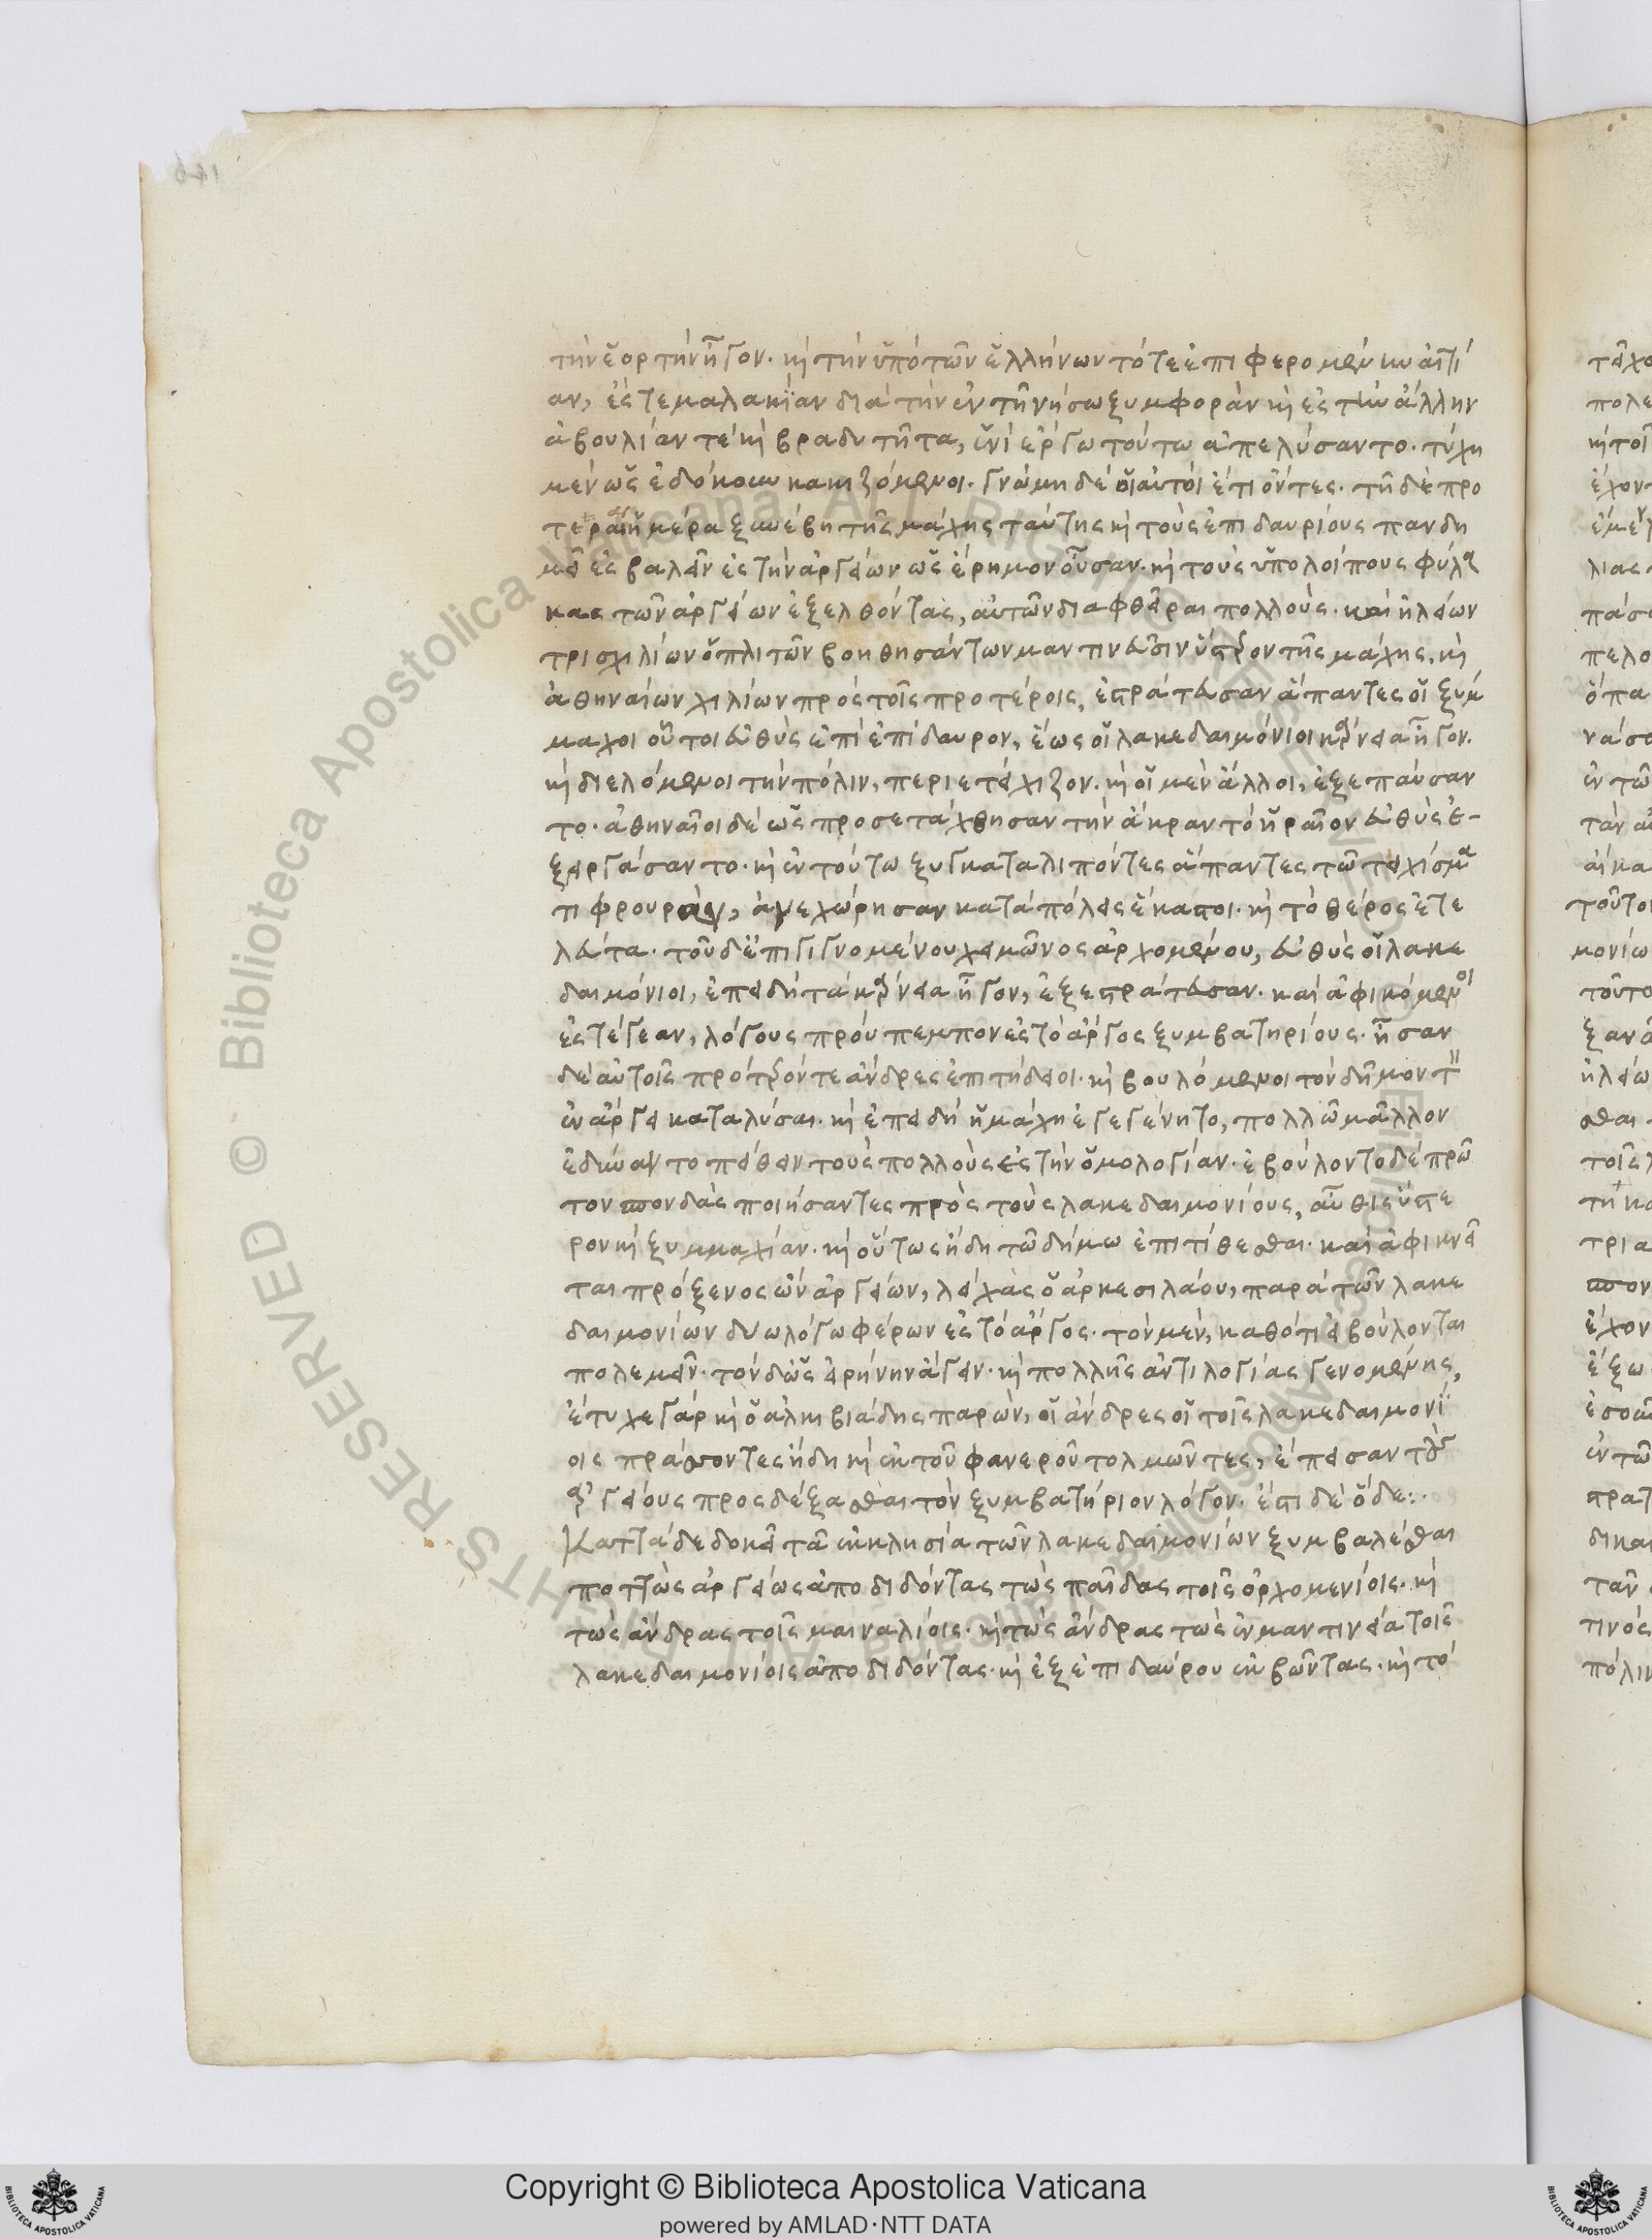 τὴν ἑορτὴν ἦγον. καὶ τὴν ὑπὸ τῶν ἑλλήνων τότε ἐπιφερομένην αἰτί
αν, ἔς τε μαλακίαν διὰ τὴν ἐν τῇ νήσω ξυμφορὰν καὶ ἐς τὴν ἄλλην
ἀβουλίαν τὲ καὶ βραδυτῆτα, ἑνὶ ἔργω τούτω ἀπελύσαντο. τύχη
μὲν ὡς ἐδόκουν κακιζόμενοι. γνώμη δὲ οἱ αὐτοὶ ἔτι ὄντες. τῇ δὲ προ
τεραία ἡμέρα ξυνέβη τῆς μάχης ταύτης καὶ τοὺς ἐπιδαυρίους πανδη
μεὶ ἐσβαλεῖν ἐς τὴν ἀργείων ὡς ἔρημον οὖσαν. καὶ τοὺς ὑπολοίπους φύλα
κας τῶν ἀργείων ἐξελθόντας, αὐτῶν διαφθεῖραι πολλούς. καὶ ἠλείων
τρισχιλίων ὁπλιτῶν βοηθησάντων μαντινεῦσιν ὕστερον τῆς μάχης, καὶ
ἀθηναίων χιλίων πρὸς τοῖς προτέροις, ἐστράτευσαν ἅπαντες οἱ ξύμ
μαχοι οὗτοι εὐθὺς ἐπὶ ἐπίδαυρον, ἕως οἱ λακεδαιμόνιοι κάρνεα ἦγον.
καὶ διελόμενοι τὴν πόλιν, περιετείχιζον. καὶ οἱ μὲν ἄλλοι, ἐξεπαύσαν
το. ἀθηναῖοι δὲ ὡς προσετάχθησαν τὴν ἄκραν τὸ ἡραῖον εὐθὺς ἐ-
ξειργάσαντο. καὶ ἐν τούτω ξυγκαταλιπόντες ἅπαντες τῶ τειχίσμα
τι φρουράν, ἀνεχώρησαν κατὰ πόλεις ἕκαστοι. καὶ τὸ θέρος ἐτε
λεύτα. τοῦ δ' ἐπιγιγνομένου χειμῶνος ἀρχομένου, εὐθὺς οἱ λακε
δαιμόνιοι, ἐπειδὴ τὰ κάρνεα ἦγον, ἐξεστράτευσαν. καὶ ἀφικόμενοι
ἐς τέγεαν, λόγους προύπεμπον ἐς τὸ ἄργος ξυμβατηρίους. ἦσαν
δὲ αὐτοῖς πρότερόν τε ἄνδρες ἐπιτήδειοι. καὶ βουλόμενοι τὸν δῆμον τὸν
ἐν ἄργει καταλῦσαι. καὶ ἐπειδὴ ἡ μάχη ἐγεγένητο, πολλῶ μᾶλλον
ἐδύναντο πείθειν τοὺς πολλοὺς ἐς τὴν ὁμολογίαν. ἐβούλοντο δὲ πρῶ
τον σπονδὰς ποιήσαντες πρὸς τοὺς λακεδαιμονίους, αὖθις ὕστε
ρον καὶ ξυμμαχίαν. καὶ οὕτως ἤδη τῶ δήμω ἐπιτίθεσθαι. καὶ ἀφικνεῖ
ται πρόξενος ὢν ἀργείων, λείχας ὁ ἀρκεσιλάου, παρὰ τῶν λακε
δαιμονίων δύω λόγω φέρων ἐς τὸ ἄργος. τὸν μὲν, καθότι εἰ βούλονται
πολεμεῖν. τὸν δ' ὡς εἰρήνην ἄγειν. καὶ πολλῆς ἀντιλογίας γενομένης,
ἔτυχε γὰρ καὶ ὁ ἀλκιβιάδης παρών, οἱ ἄνδρες οἱ τοῖς λακεδαιμονί
οις πράσσοντες ἤδη καὶ ἐκ τοῦ φανεροῦ τολμῶντες, ἔπεισαν τοὺς
ἀργείους προσδέξασθαι τὸν ξυμβατήριον λόγον. ἔστι δὲ ὅδε:.
Καττάδε δοκεῖ τᾶ ἐκκλησία τῶν λακεδαιμονίων ξυμβαλέσθαι
ποττὼς ἀργείως ἀποδιδόντας τὼς παῖδας τοῖς ὀρχομενίοις. καὶ
τὼς ἄνδρας τοῖς μαιναλίοις. καὶ τὼς ἄνδρας τὼς ἐν μαντινεία τοῖς
λακεδαιμονίοις ἀποδιδόντας. καὶ ἐξ ἐπιδαύρου ἐκβῶντας. καὶ τὸ
Copyright © Biblioteca Apostolica Vaticana
powered by AMLAD·NTT DATA